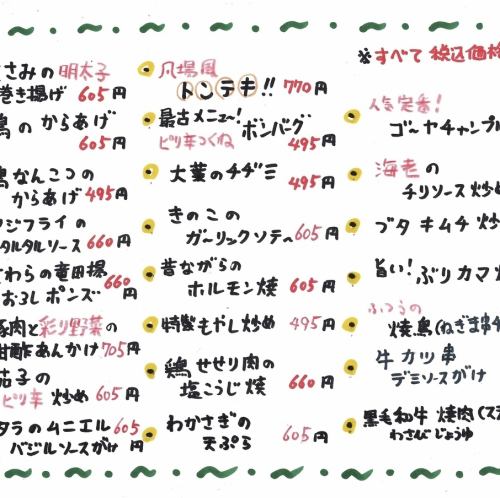 さみの 明太子
巻き揚げ 605円
鶏の からあげ
605円
鶏なんこつの
からあげ 495円
アジフライの
タルタルソース 660円
さわらの竜田揚 660円
おろし ポンズ
豚肉と彩り野菜の
甘酢あんかけ 705円
茄子の
ピリ辛 炒め 605円
タラの ムニエル 605円
バジルソースがけ
凡場風
トンテキ!! 770円
最古メニュー! ボンバーグ
ピリ辛つくね 495円
大葉のチヂミ 495円
きのこの
ガーリックソテー 605円
昔ながらの
ホルモン焼 605円
特製もやし炒め 495円
鶏せせり肉の
塩こうじ焼 660円
わかさぎの
天ぷら 605円
※すべて 税込価格
人気定番!
ゴーヤチャンプル
海老の
チリソース炒め
ブタ キムチ 炒
旨い! ぶりカマ
ふつうの
焼鳥(ねぎま串
牛カツ串
デミソースがけ
黒毛和牛 焼肉(
わさびじょうゆ